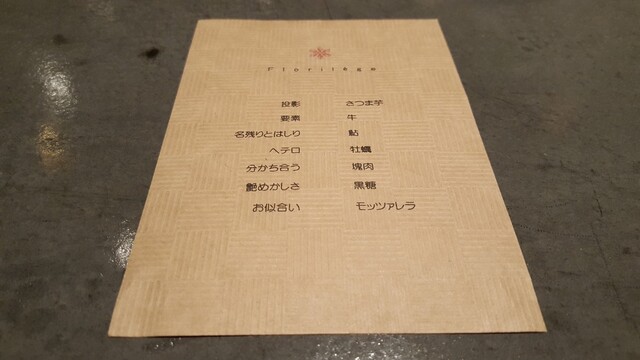 Florilège
投影 さつま芋
要素 牛
名残りとはしり 鮎
ヘテロ 牡蠣
分かち合う 塊肉
艶めかしさ 黒糖
お似合い モッツァレラ